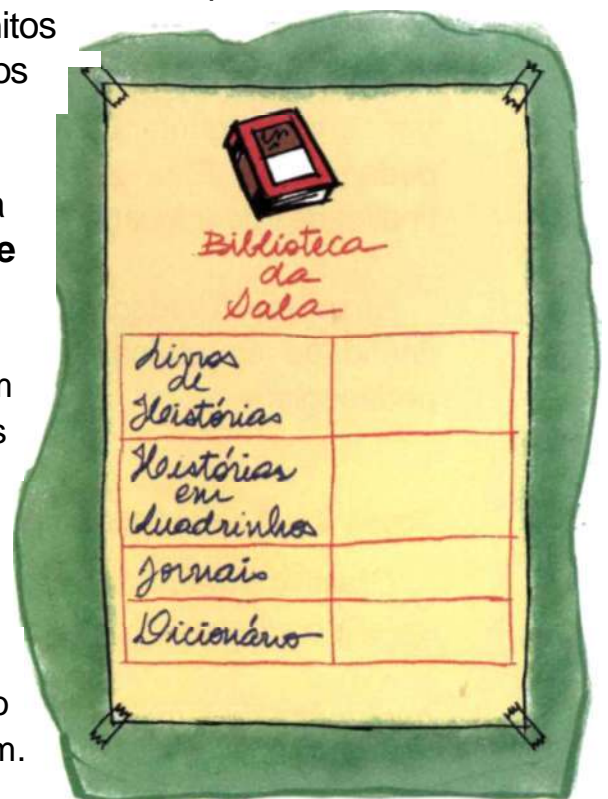 nitos
os
a
e
m
s
Biblioteca
da
Sala
Livros
de
Histórias
Histórias
em
Quadrinhos
Jornais
Dicionário
o
m.